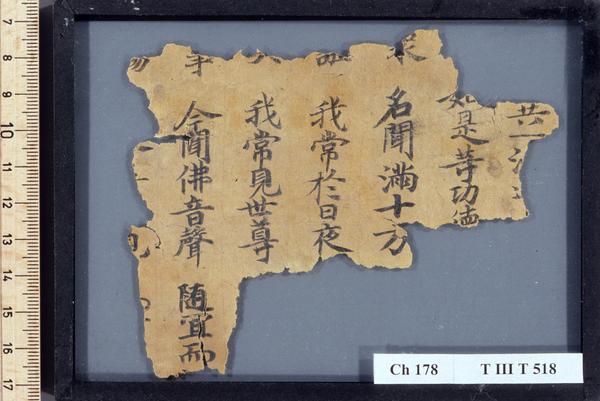 共一法
如是等功德
名聞滿十方
我常於日夜
我常見世尊
事 今聞佛音聲 随宜而
7
8
9
10
11
12
13
14
15
16
17
Ch 178 T III T 518